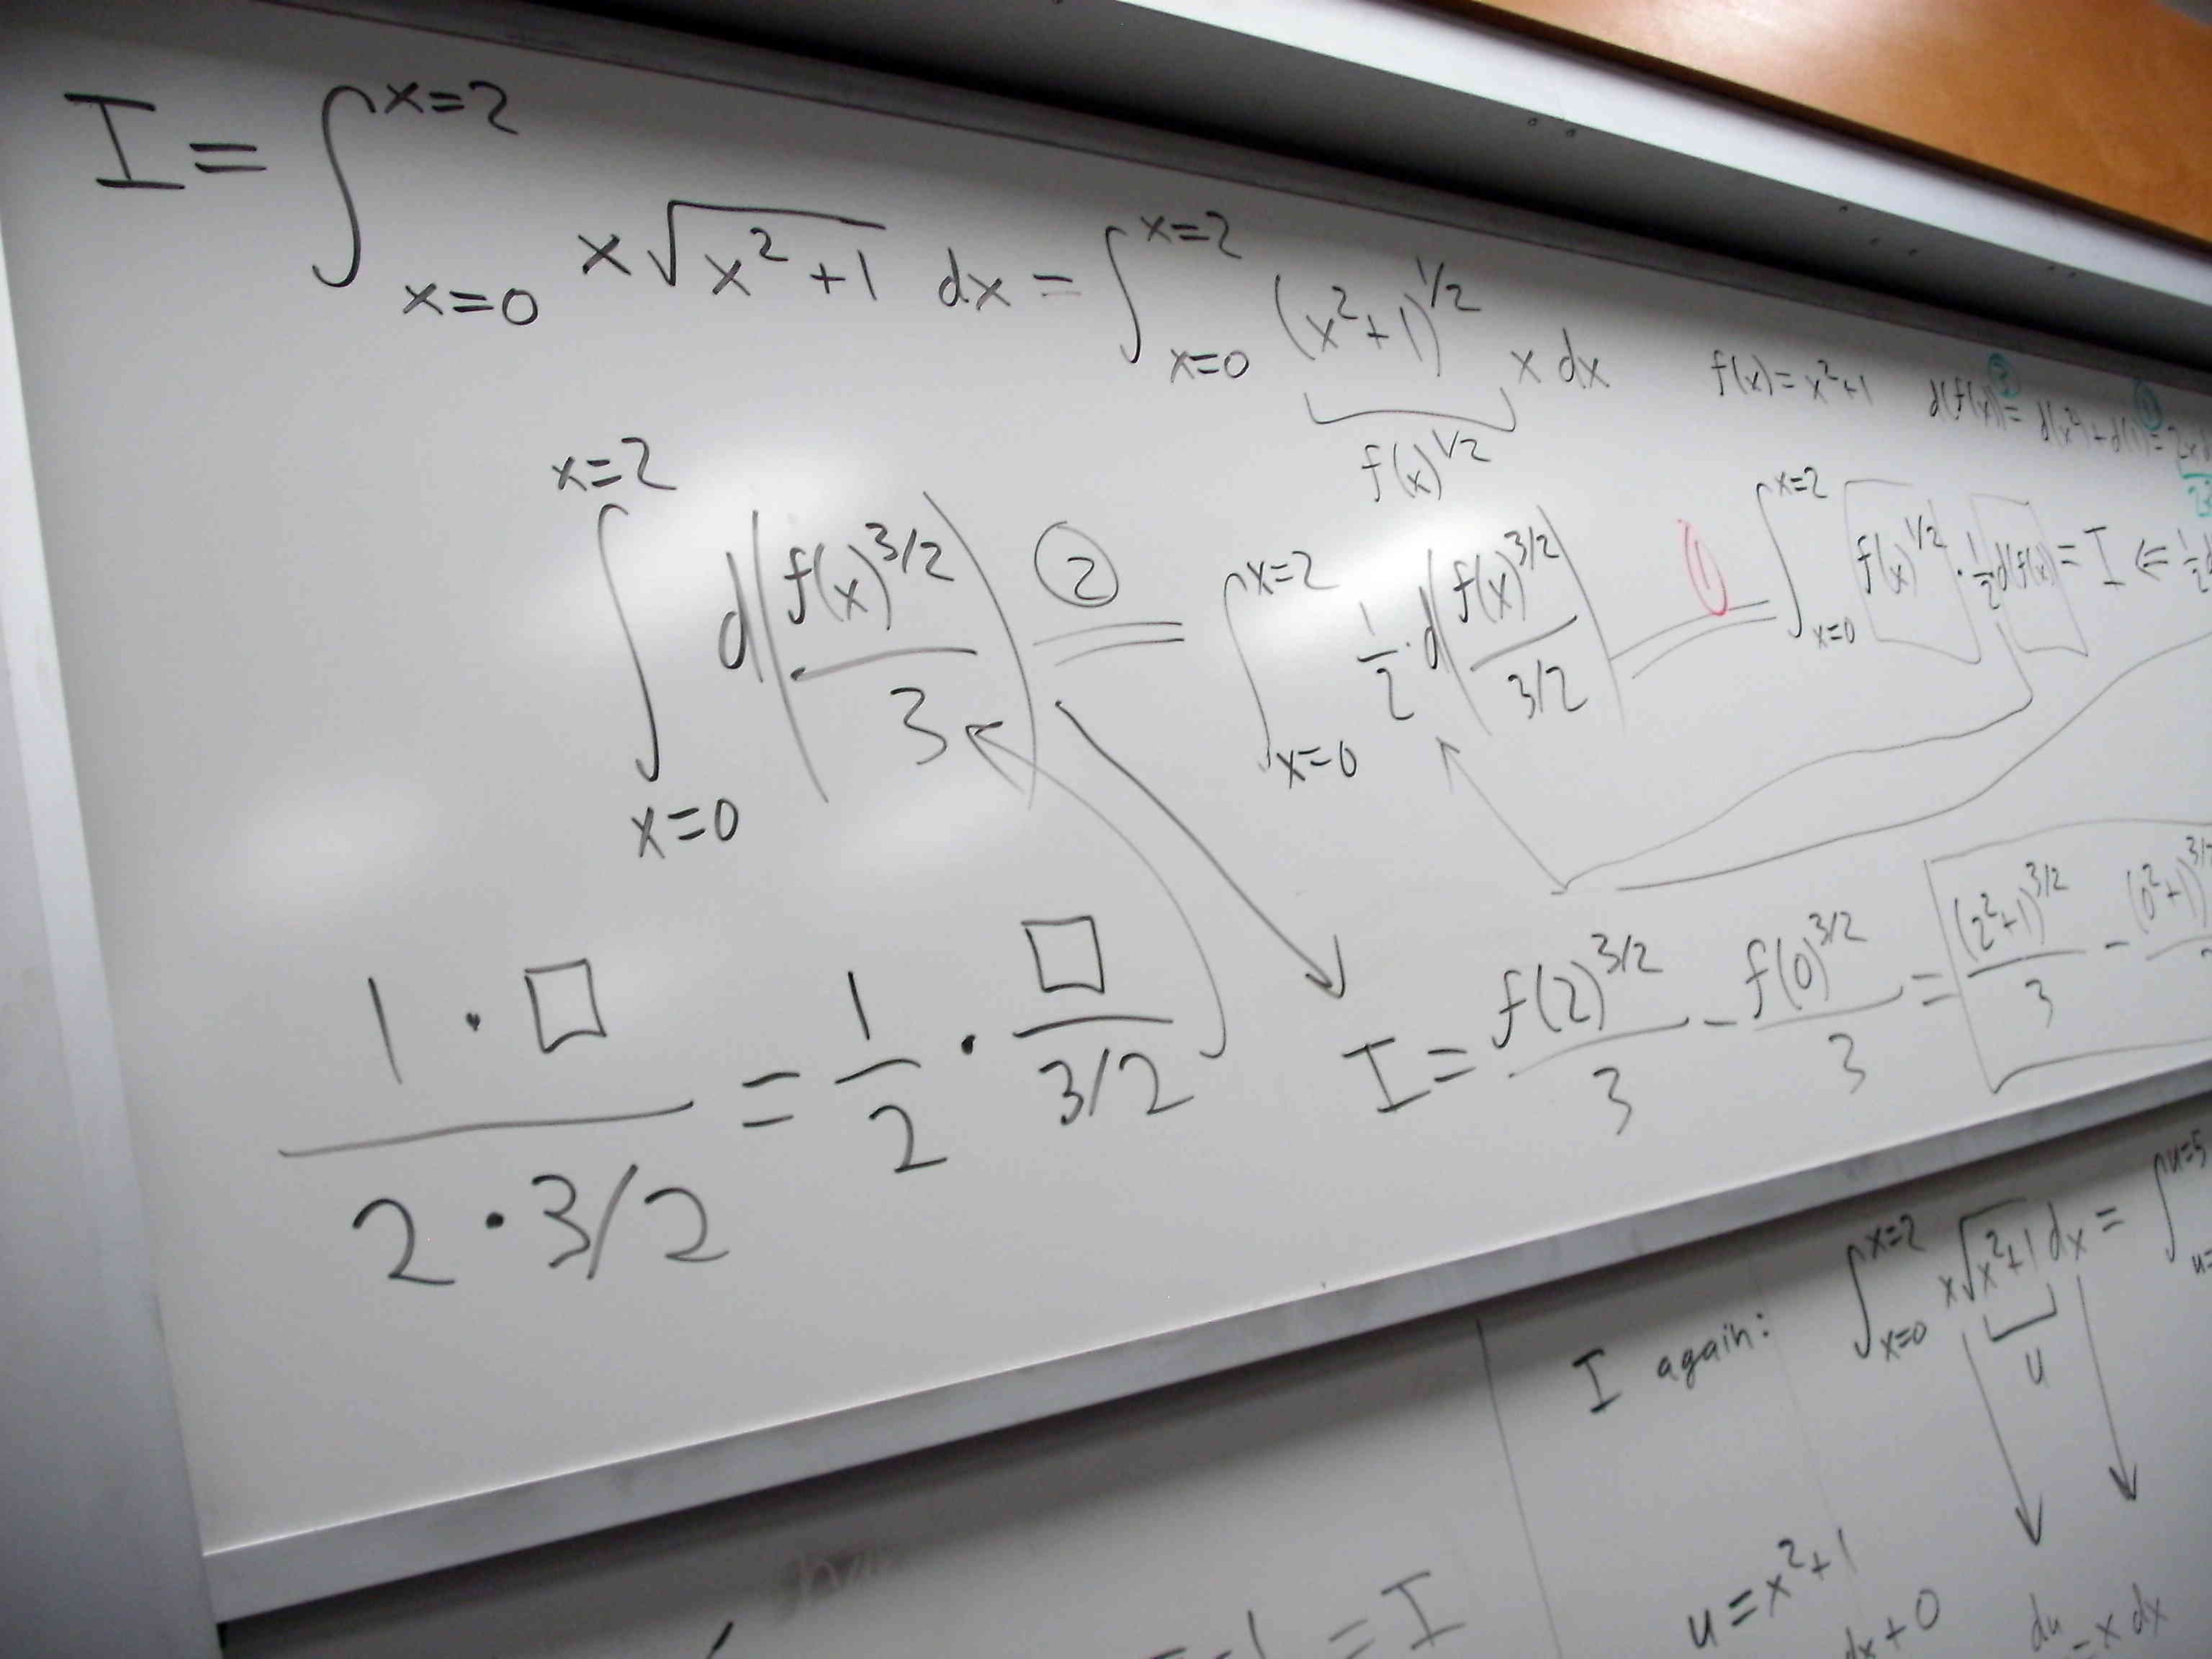 I = ∫_{x=0}^{x=2} x√(x²+1) dx = ∫_{x=0}^{x=2} (x²+1)^{1/2} x dx
f(x)^{1/2}
f(x) = x²+1 d(f(x)) = d(x²) + d(1) =
∫_{x=0}^{x=2} d(f(x)^{3/2} / 3) ② = ∫_{x=0}^{x=2} 1/2 · d(f(x)^{3/2} / 3/2) ① = ∫_{x=0}^{x=2} f(x)^{1/2} · 1/2 d(f(x)) = I ⇐ 1/2
1·□ / 2·3/2 = 1/2 · □ / 3/2
I = f(2)^{3/2} / 3 − f(0)^{3/2} / 3 = (2²+1)^{3/2} / 3 − (0²+1)^{3/2}
I again: ∫_{x=0}^{x=2} x√(x²+1) dx = ∫^{u=5}_{u=
u
u = x²+1
dx + 0
du = x dx
-1 = I